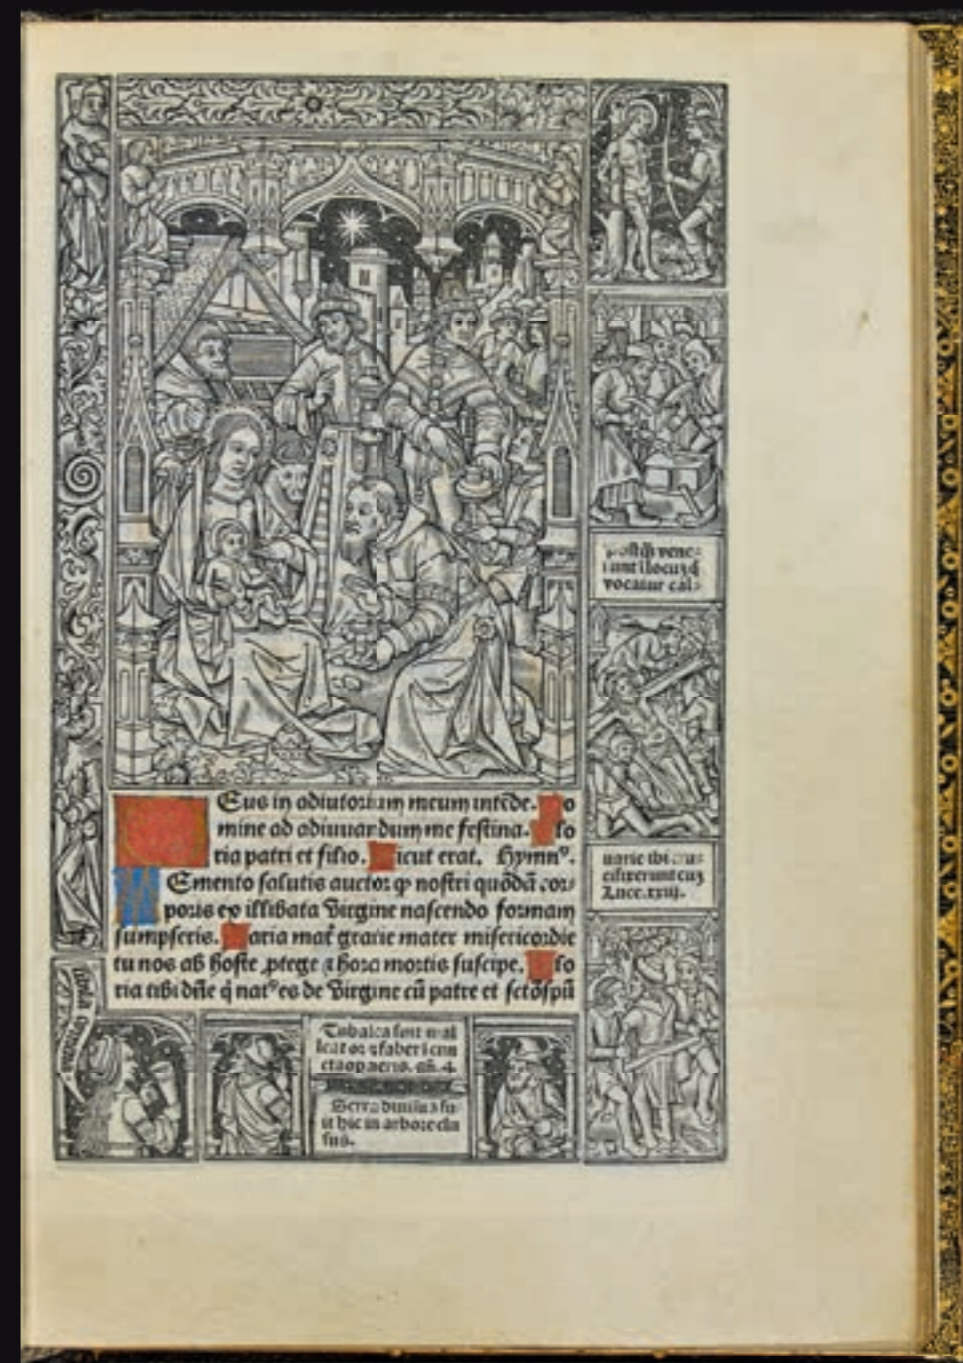 Eus in adiutorium meum intēde. o
mine ad adiuuandum me festina. lo
ria patri et filio. icut erat. Hymnꝰ.
Emento salutis auctor ꝙ nostri quōdā cor⸗
poris ex illibata Virgine nascendo formam
sumpseris. aria mat̄ gratie mater misericordie
tu nos ab hoste ꝓtege ⁊ hora mortis suscipe. lo
ria tibi dn̄e q̄ natꝰ es de Virgine cū patre et sctō spū
postꝙ̄ vene⸗
runt ī locuꝫ q̄
vocatur cal⸗
uarie ibi cru⸗
cifixerunt euꝫ
Luce. xxiij.
Tubalca fuit mal
leator ⁊ faber ī cun
cta eris. gn̄. 4.
Serra diuisus fu⸗
it hic in arbore clu
sus.